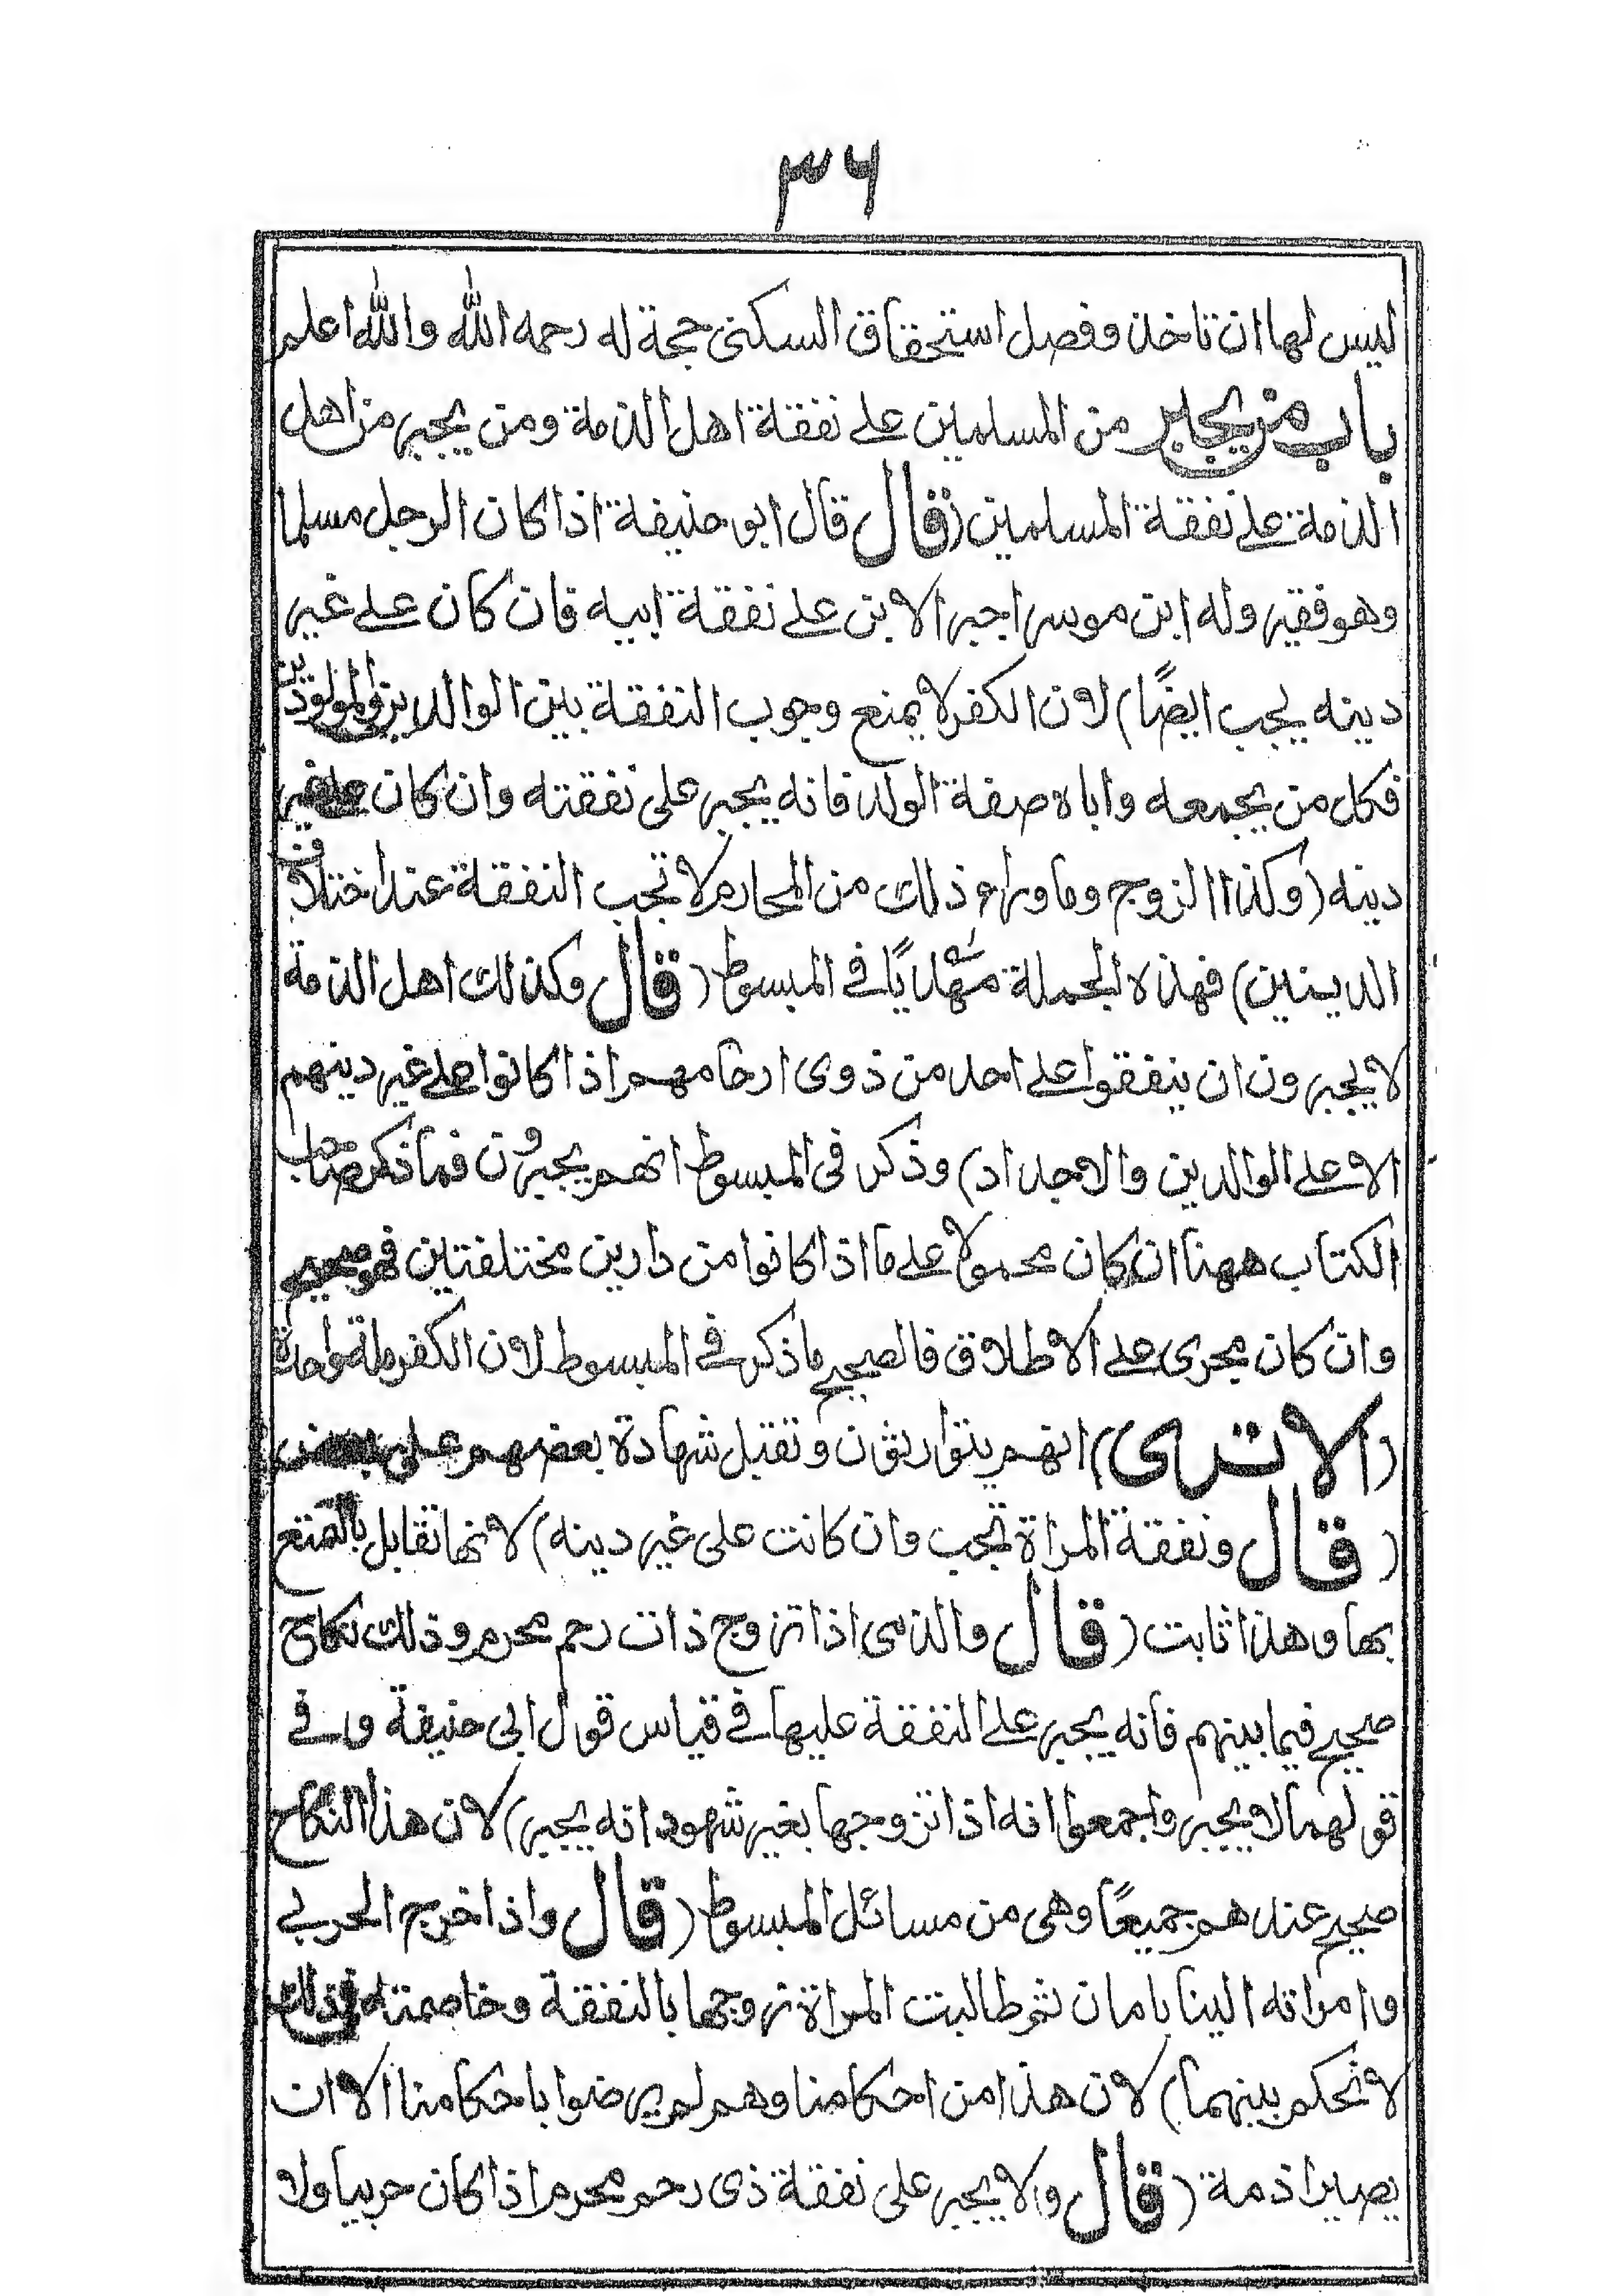 ٣٦
ليس لها ان تاخذ وفصل استحقاق السكنى حجة له رحمه الله والله اعلم
باب من يجبر من المسلمين على نفقة اهل الذمة ومن يجبر من اهل
الذمة على نفقة المسلمين (قال قال ابو حنيفة اذا كان الرجل مسلما
وهو فقير وله ابن موسر اجبر الابن على نفقة ابيه فان كان على غير
دينه يجب ايضًا) لان الكفر لا يمنع وجوب النفقة بين الوالدين والمولودين
فكل من يجمعه واباه صفة الولاد فانه يجبر على نفقته وان كان على غير
دينه (وكذا الزوج وما وراء ذلك من المحارم لا تجب النفقة عند اختلاف
الدينين) فهذه الجملة في المبسوط (قال وكذلك اهل الذمة
لا يجبرون ان ينفقوا على احد من ذوى ارحامهم اذا كانوا على غير دينهم
الا على الوالدين والاجداد) وذكر فى المبسوط انهم يجبرون فما ذكر صاحب
الكتاب ههنا ان كان محمولا على ما اذا كانوا من دارين مختلفتين فهو صحيح
وان كان مجرى على الاطلاق فالصحيح ما ذكر في المبسوط لان الكفر ملة واحدة
(الا ترى) انهم يتوارثون وتقبل شهادة بعضهم على بعض
(قال ونفقة المراة تجب وان كانت على غير دينه) لانها تقابل بالتمتع
بها وهذا ثابت (قال والذمى اذا تزوج ذات رحم محرم وذلك نكاح
صحيح فيما بينهم فانه يجبر على النفقة عليها في قياس قول ابى حنيفة وفي
قولهما لا يجبر واجمعوا انه اذا تزوجها بغير شهود انه يجبر) لان هذا النكاح
صحيح عندهم جميعًا وهى من مسائل المبسوط (قال واذا خرج الحربي
وامراته الينا بامان ثم طالبت المراة زوجها بالنفقة وخاصمته في ذلك
لا نحكم بينهما) لان هذا من احكامنا وهم لم يرضوا باحكامنا الا ان
يصيرا ذمة (قال ولا يجبر على نفقة ذى رحم محرم اذا كان حربيا ولا